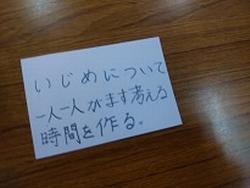 いじめについて
一人一人がます考える
時間を作る。